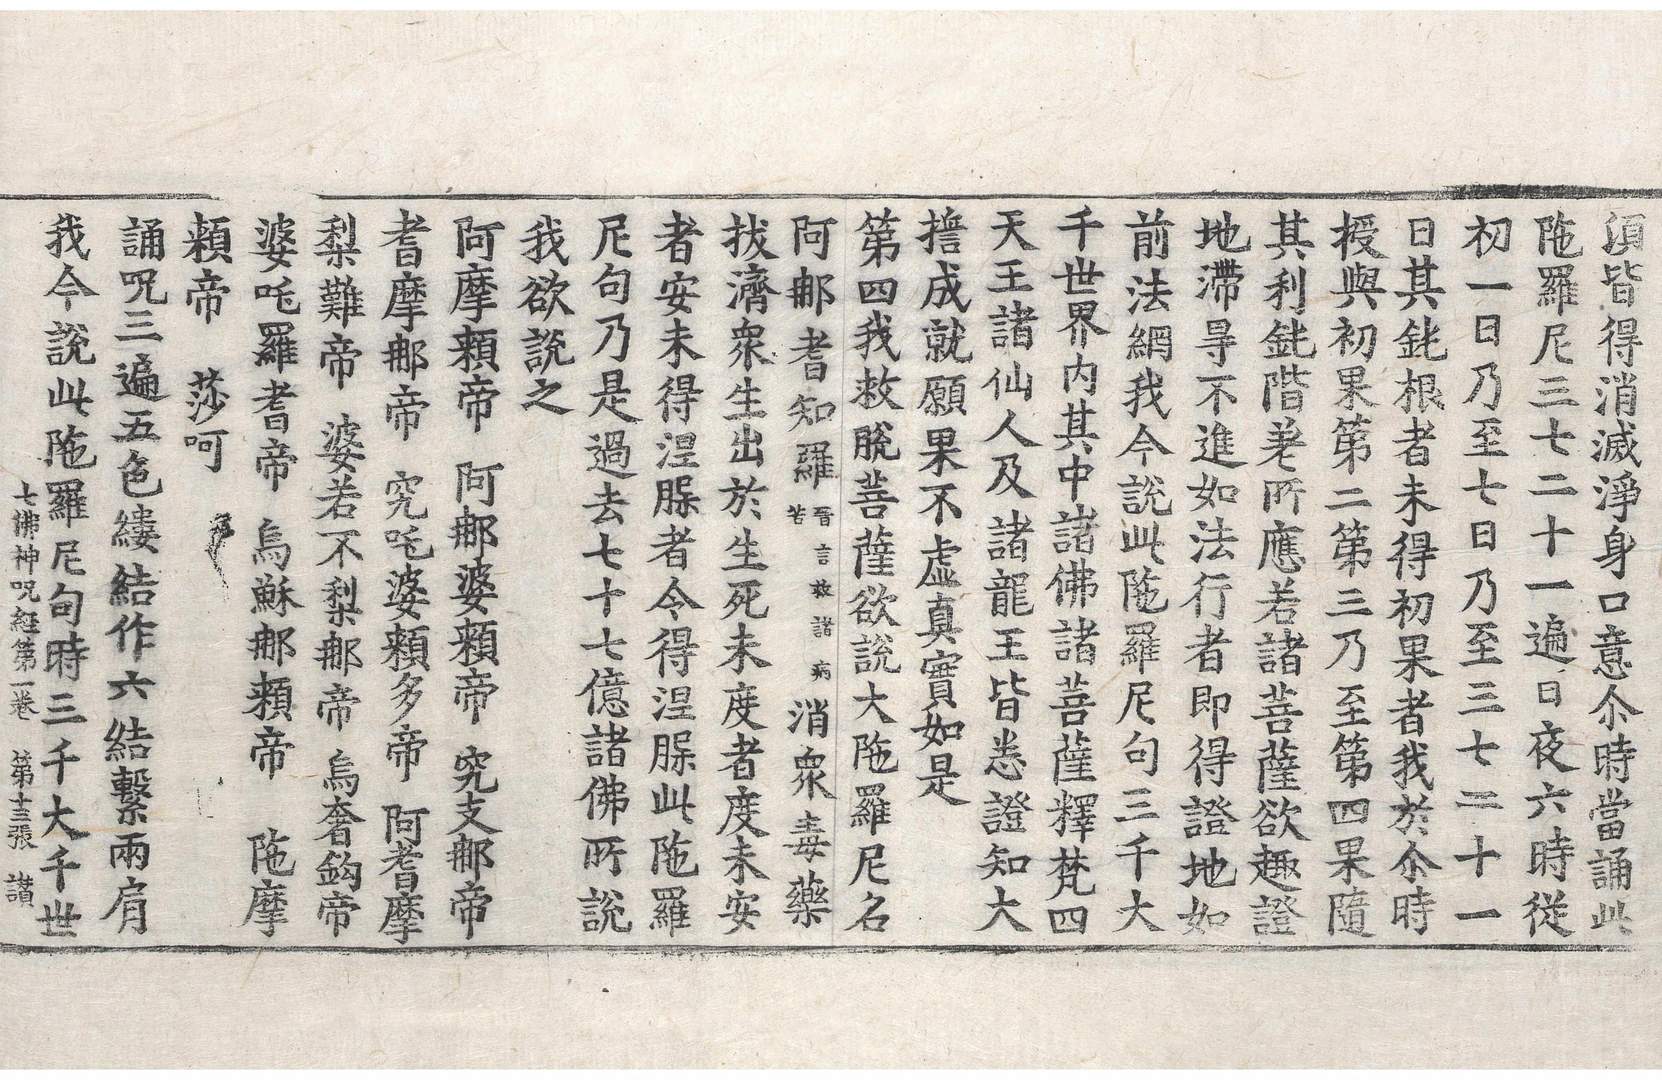 須皆得消滅淨身口意尒時當誦此
陁羅尼三七二十一遍日夜六時從
初一日乃至七日乃至三七二十一
日其鈍根者未得初果者我於尒時
授與初果第二第三乃至第四果隨
其利鈍階差所應若諸菩薩欲趣證
地滯㝵不進如法行者即得證地如
前法網我今說此陁羅尼句三千大
千世界內其中諸佛諸菩薩釋梵四
天王諸仙人及諸龍王皆悉證知大
擔成就願果不虛真實如是
第四我救脫菩薩欲說大陁羅尼名
阿郍耆知羅晉言救諸病苦消衆毒藥
拔濟衆生出於生死未度者度未安
者安未得涅脵者令得涅脵此陁羅
尼句乃是過去七十七億諸佛所說
我欲說之
阿摩頼帝 阿郍婆頼帝 究支郍帝
耆摩郍帝 究吒婆頼多帝 阿耆摩
梨難帝 婆若不梨郍帝 烏奢鈎帝
婆吒羅耆帝 烏穌郍頼帝 陁摩
頼帝 莎呵
誦呪三遍五色縷結作六結繫兩肩
我今說此陁羅尼句時三千大千世
七佛神呪經第一卷 第十三張 讃